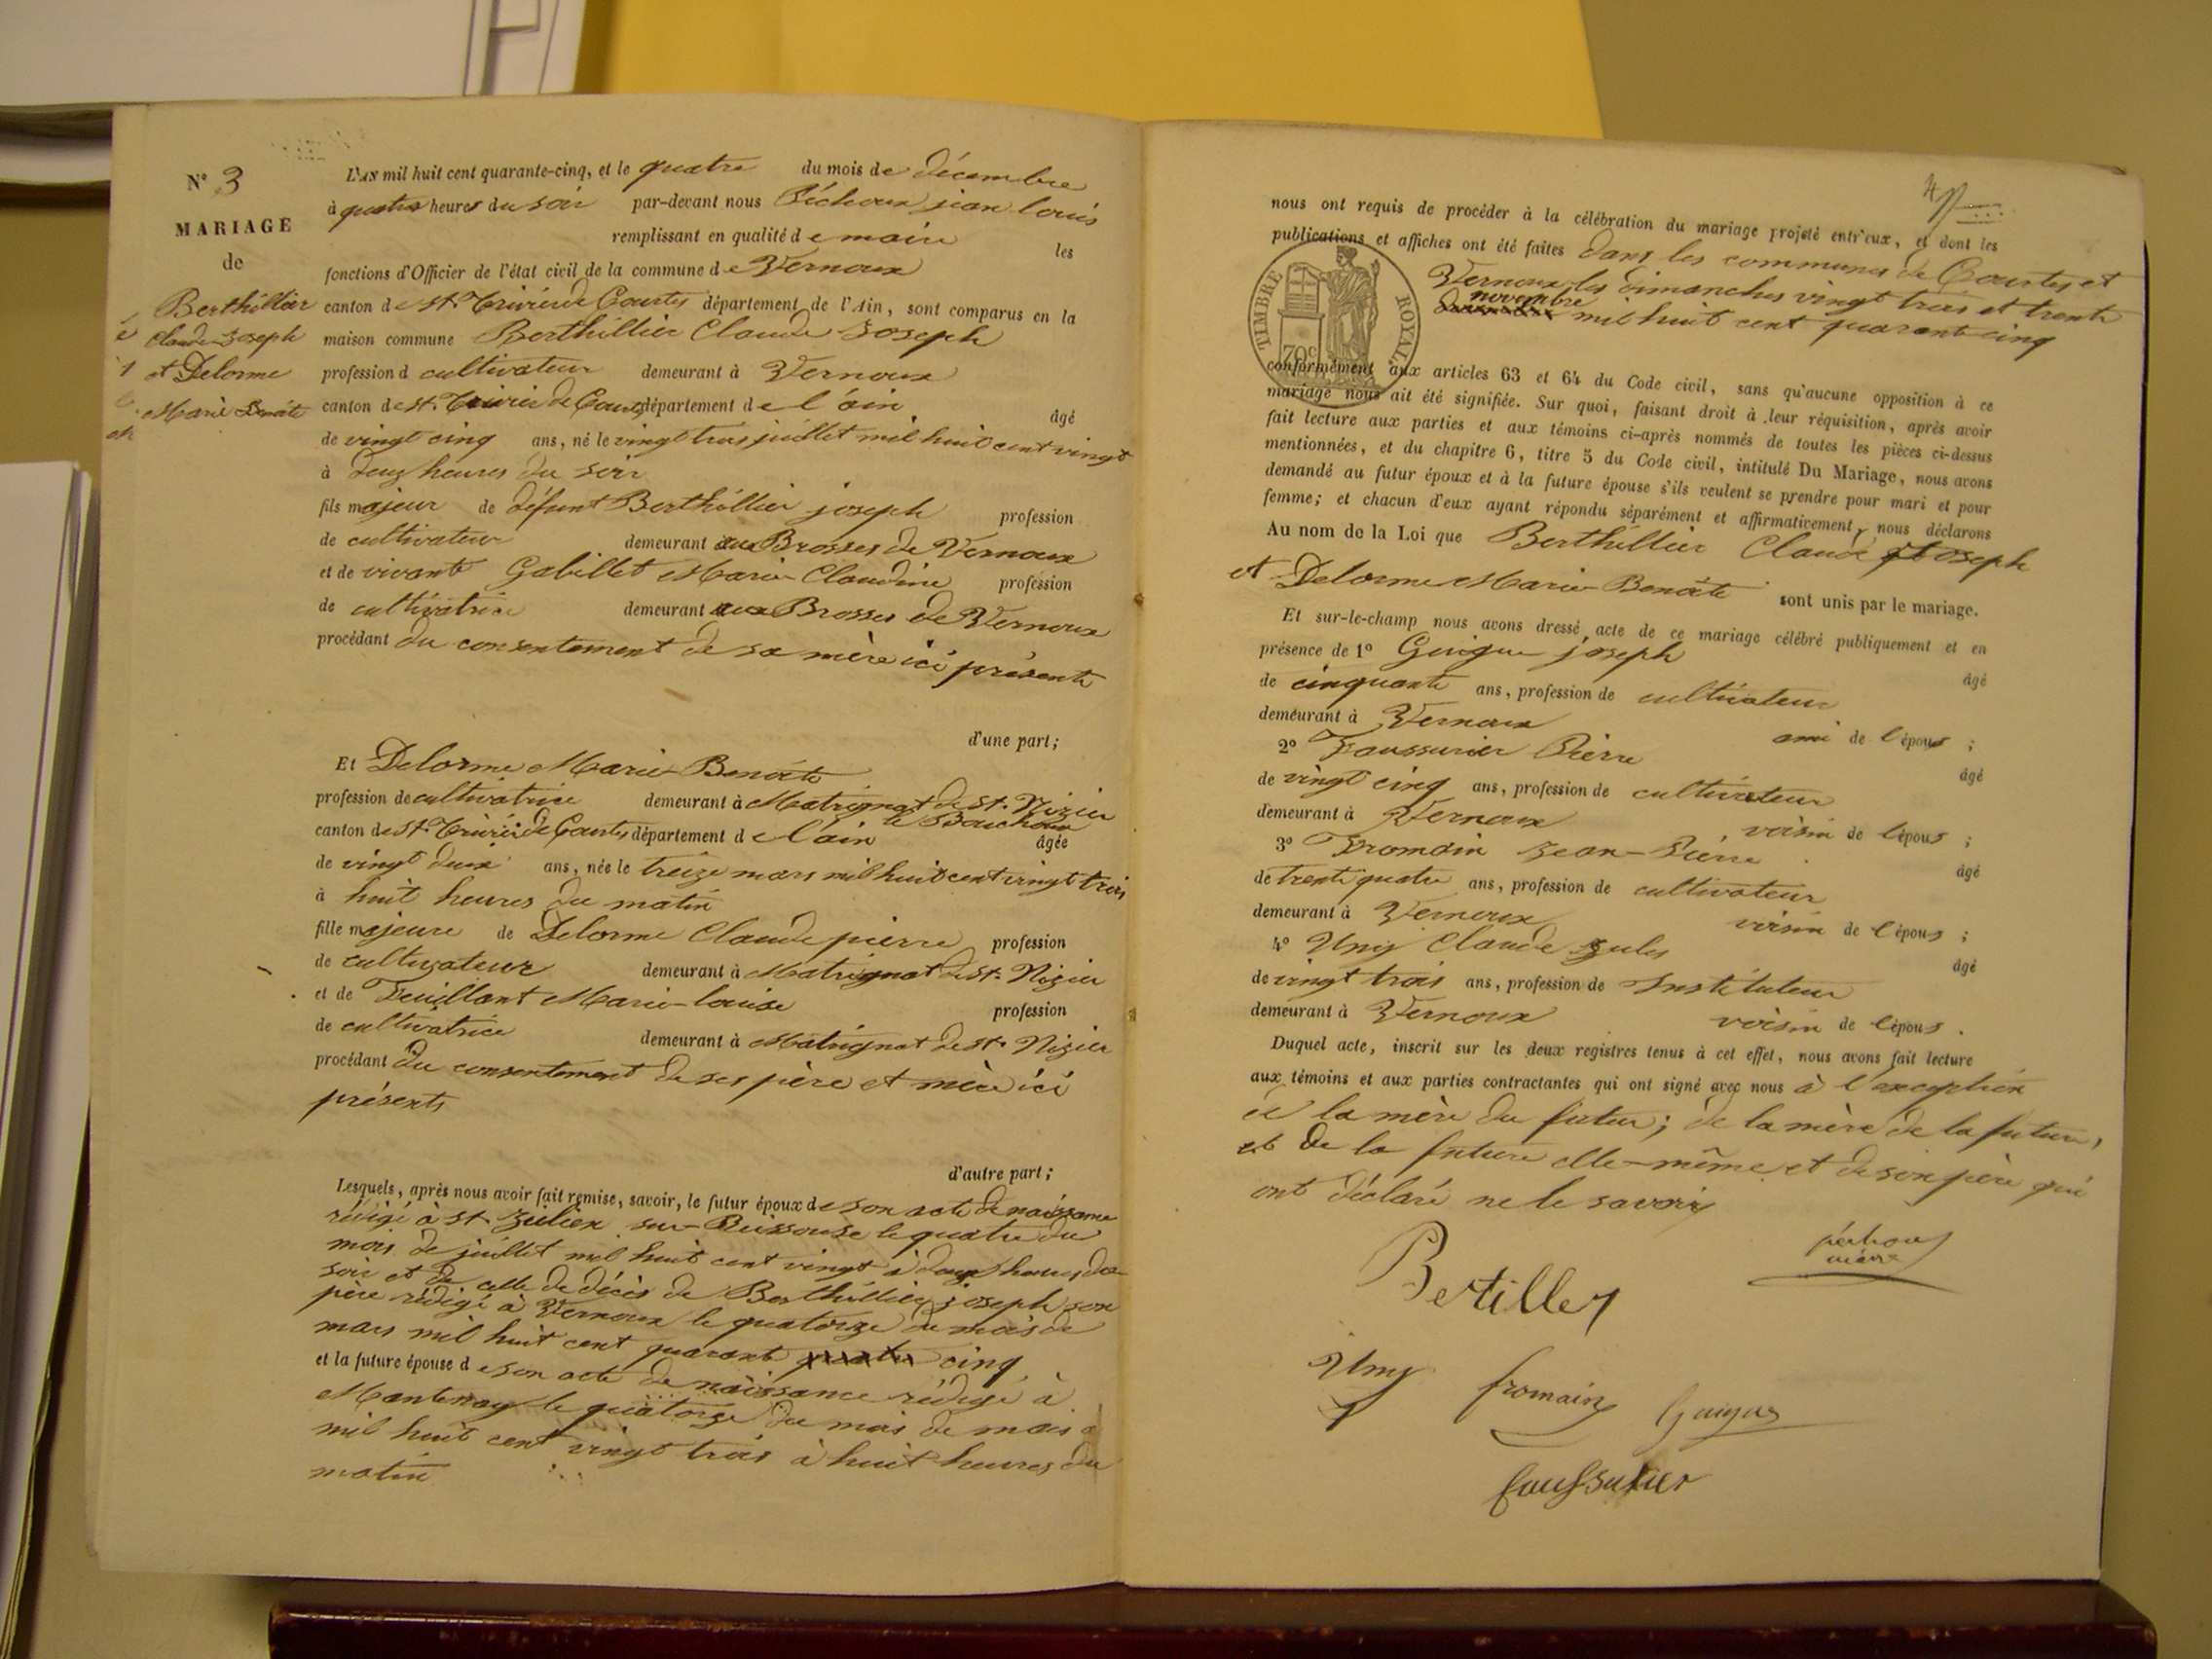 N° 3
MARIAGE
de
Berthillier
Claude Joseph
et Delorme
Marie Benoite
L'AN mil huit cent quarante-cinq, et le quatre du mois de décembre
à quatre heures du soir par-devant nous Péchoux jean louis
remplissant en qualité de maire les
fonctions d'Officier de l'état civil de la commune de Vernoux
canton de St. Trivier de Courtes département de l'Ain, sont comparus en la
maison commune Berthillier Claude Joseph
profession d cultivateur demeurant à Vernoux
canton de St. Trivier de Courtes département de l'ain âgé
de vingt cinq ans, né le vingt trois juillet mil huit cent vingt
à deux heures du soir
fils majeur de défunt Berthillier joseph profession
de cultivateur demeurant aux Brosses de Vernoux
et de vivante Gabillet Marie Claudine profession
de cultivatrice demeurant aux Brosses de Vernoux
procédant du consentement de sa mère ici présente
d'une part;
Et Delorme Marie Benoite
profession de cultivatrice demeurant à Matrignat de St. Nizier
le Bouchoux
canton de St. Trivier de Courtes département de l'ain âgée
de vingt deux ans, née le treize mars mil huit cent vingt trois
à huit heures du matin
fille majeure de Delorme Claude pierre profession
de cultivateur demeurant à Matrignat de St. Nizier
et de Feuillant Marie-louise profession
de cultivatrice demeurant à Matrignat de St. Nizier
procédant du consentement de ses père et mère ici
présents
d'autre part;
Lesquels, après nous avoir fait remise, savoir, le futur époux de son acte de naissance
rédigé à St Julien sur-Reissouse le quatre du
mois de juillet mil huit cent vingt à deux heures du
soir et de celle de décès de Berthillier joseph son
père rédigé à Vernoux le quatorze du mois de
mars mil huit cent quarante cinq
et la future épouse de son acte de naissance rédigé à
Mantenay le quatorze du mois de mars
mil huit cent vingt trois à huit heures du
matin
4
nous ont requis de procéder à la célébration du mariage projeté entr'eux, et dont les
publications et affiches ont été faites dans les communes de Courtes et
Vernoux les dimanches vingt trois et trente
novembre
mil huit cent quarante cinq
TIMBRE ROYAL
70c
conformément aux articles 63 et 64 du Code civil, sans qu'aucune opposition à ce
mariage nous ait été signifiée. Sur quoi, faisant droit à leur réquisition, après avoir
fait lecture aux parties et aux témoins ci-après nommés de toutes les pièces ci-dessus
mentionnées, et du chapitre 6, titre 5 du Code civil, intitulé Du Mariage, nous avons
demandé au futur époux et à la future épouse s'ils veulent se prendre pour mari et pour
femme; et chacun d'eux ayant répondu séparément et affirmativement, nous déclarons
Au nom de la Loi que Berthillier Claude Joseph
et Delorme Marie Benoite sont unis par le mariage.
Et sur-le-champ nous avons dressé acte de ce mariage célébré publiquement et en
présence de 1° Guigue joseph âgé
de cinquante ans, profession de cultivateur
demeurant à Vernoux ami de l'époux ;
2° Faussurier Pierre âgé
de vingt cinq ans, profession de cultivateur
demeurant à Vernoux voisin de l'époux ;
3° Fromain Jean-Pierre âgé
de trente quatre ans, profession de cultivateur
demeurant à Vernoux voisin de l'époux ;
4° Uny Claude Jules âgé
de vingt trois ans, profession de Instituteur
demeurant à Vernoux voisin de l'époux .
Duquel acte, inscrit sur les deux registres tenus à cet effet, nous avons fait lecture
aux témoins et aux parties contractantes qui ont signé avec nous à l'exception
de la mère du futur; de la mère de la future,
et de la future elle-même et de son père qui
ont déclaré ne le savoir
Bertiller
péchoux
maire
Uny fromain Guigue
faussurier